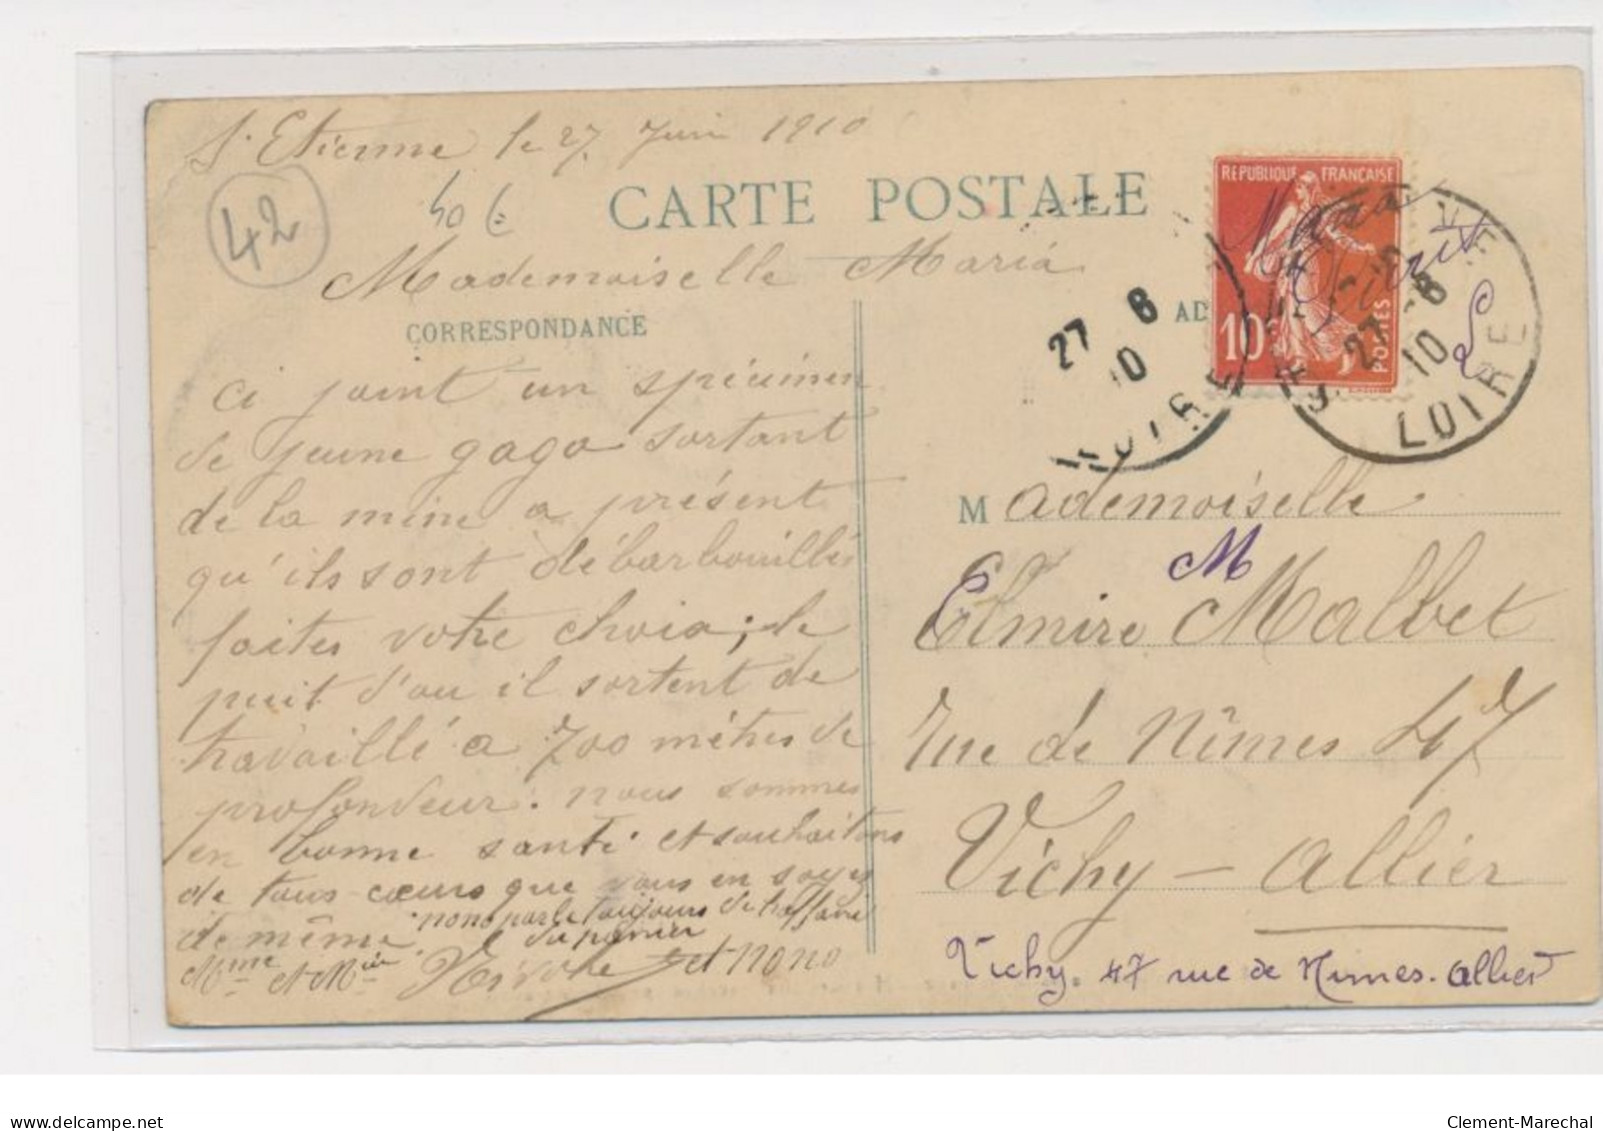 St Etienne le 27 Juin 1910
42
40 €
CARTE POSTALE
Mademoiselle Maria
CORRESPONDANCE
AD
RÉPUBLIQUE FRANÇAISE
10
POSTES
27 6
10
LOIRE
27 6
10
LOIRE
ci joint un spécimen
de jeune gaga sortant
de la mine a présent
qu'ils sont débarbouillés
faites votre choix; le
puit d'ou il sortent de
travaillé a 700 mètres de
profondeur. nous sommes
en bonne santé et souhaitons
de tous cœurs que vous en soyez
de même. nono parle toujours de
du panier
Mme et Mr et nono
Mademoiselle
M
Elmire Malbet
rue de Nîmes 47
Vichy — Allier
Vichy. 47 rue de Nimes. Allier
delcampe.net
Clement-Marechal